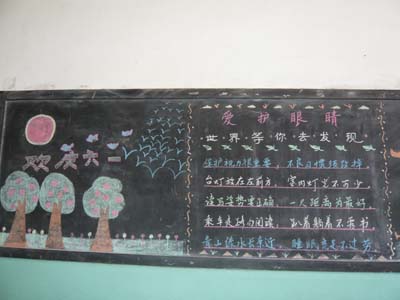 欢度六一
爱护眼睛
世界等你去发现
保护视力很重要 不良习惯须改掉
台灯放在左前方 室内灯光不可少
读写姿势要正确 一尺距离为最好
乘车走路勿阅读 趴着躺着不要书
青山绿水长亲近 睡眠